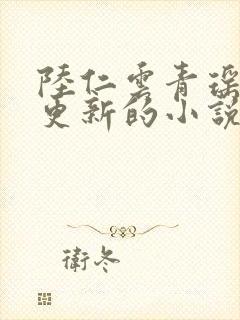 陸仁雲青瑶
更新的小說
衛冬